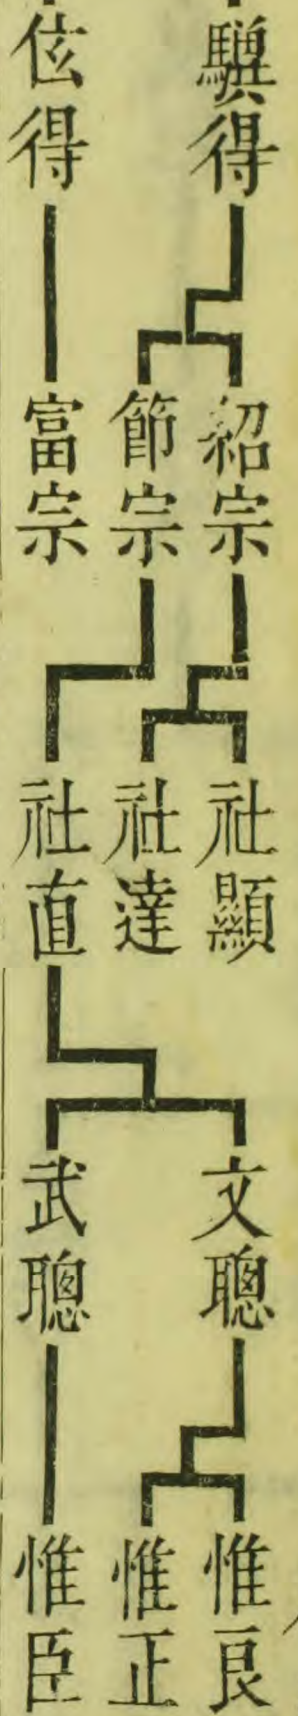 騏得
伭得
紹宗
節宗
富宗
社顯
社達
社直
文聰
武聰
惟良
惟正
惟臣